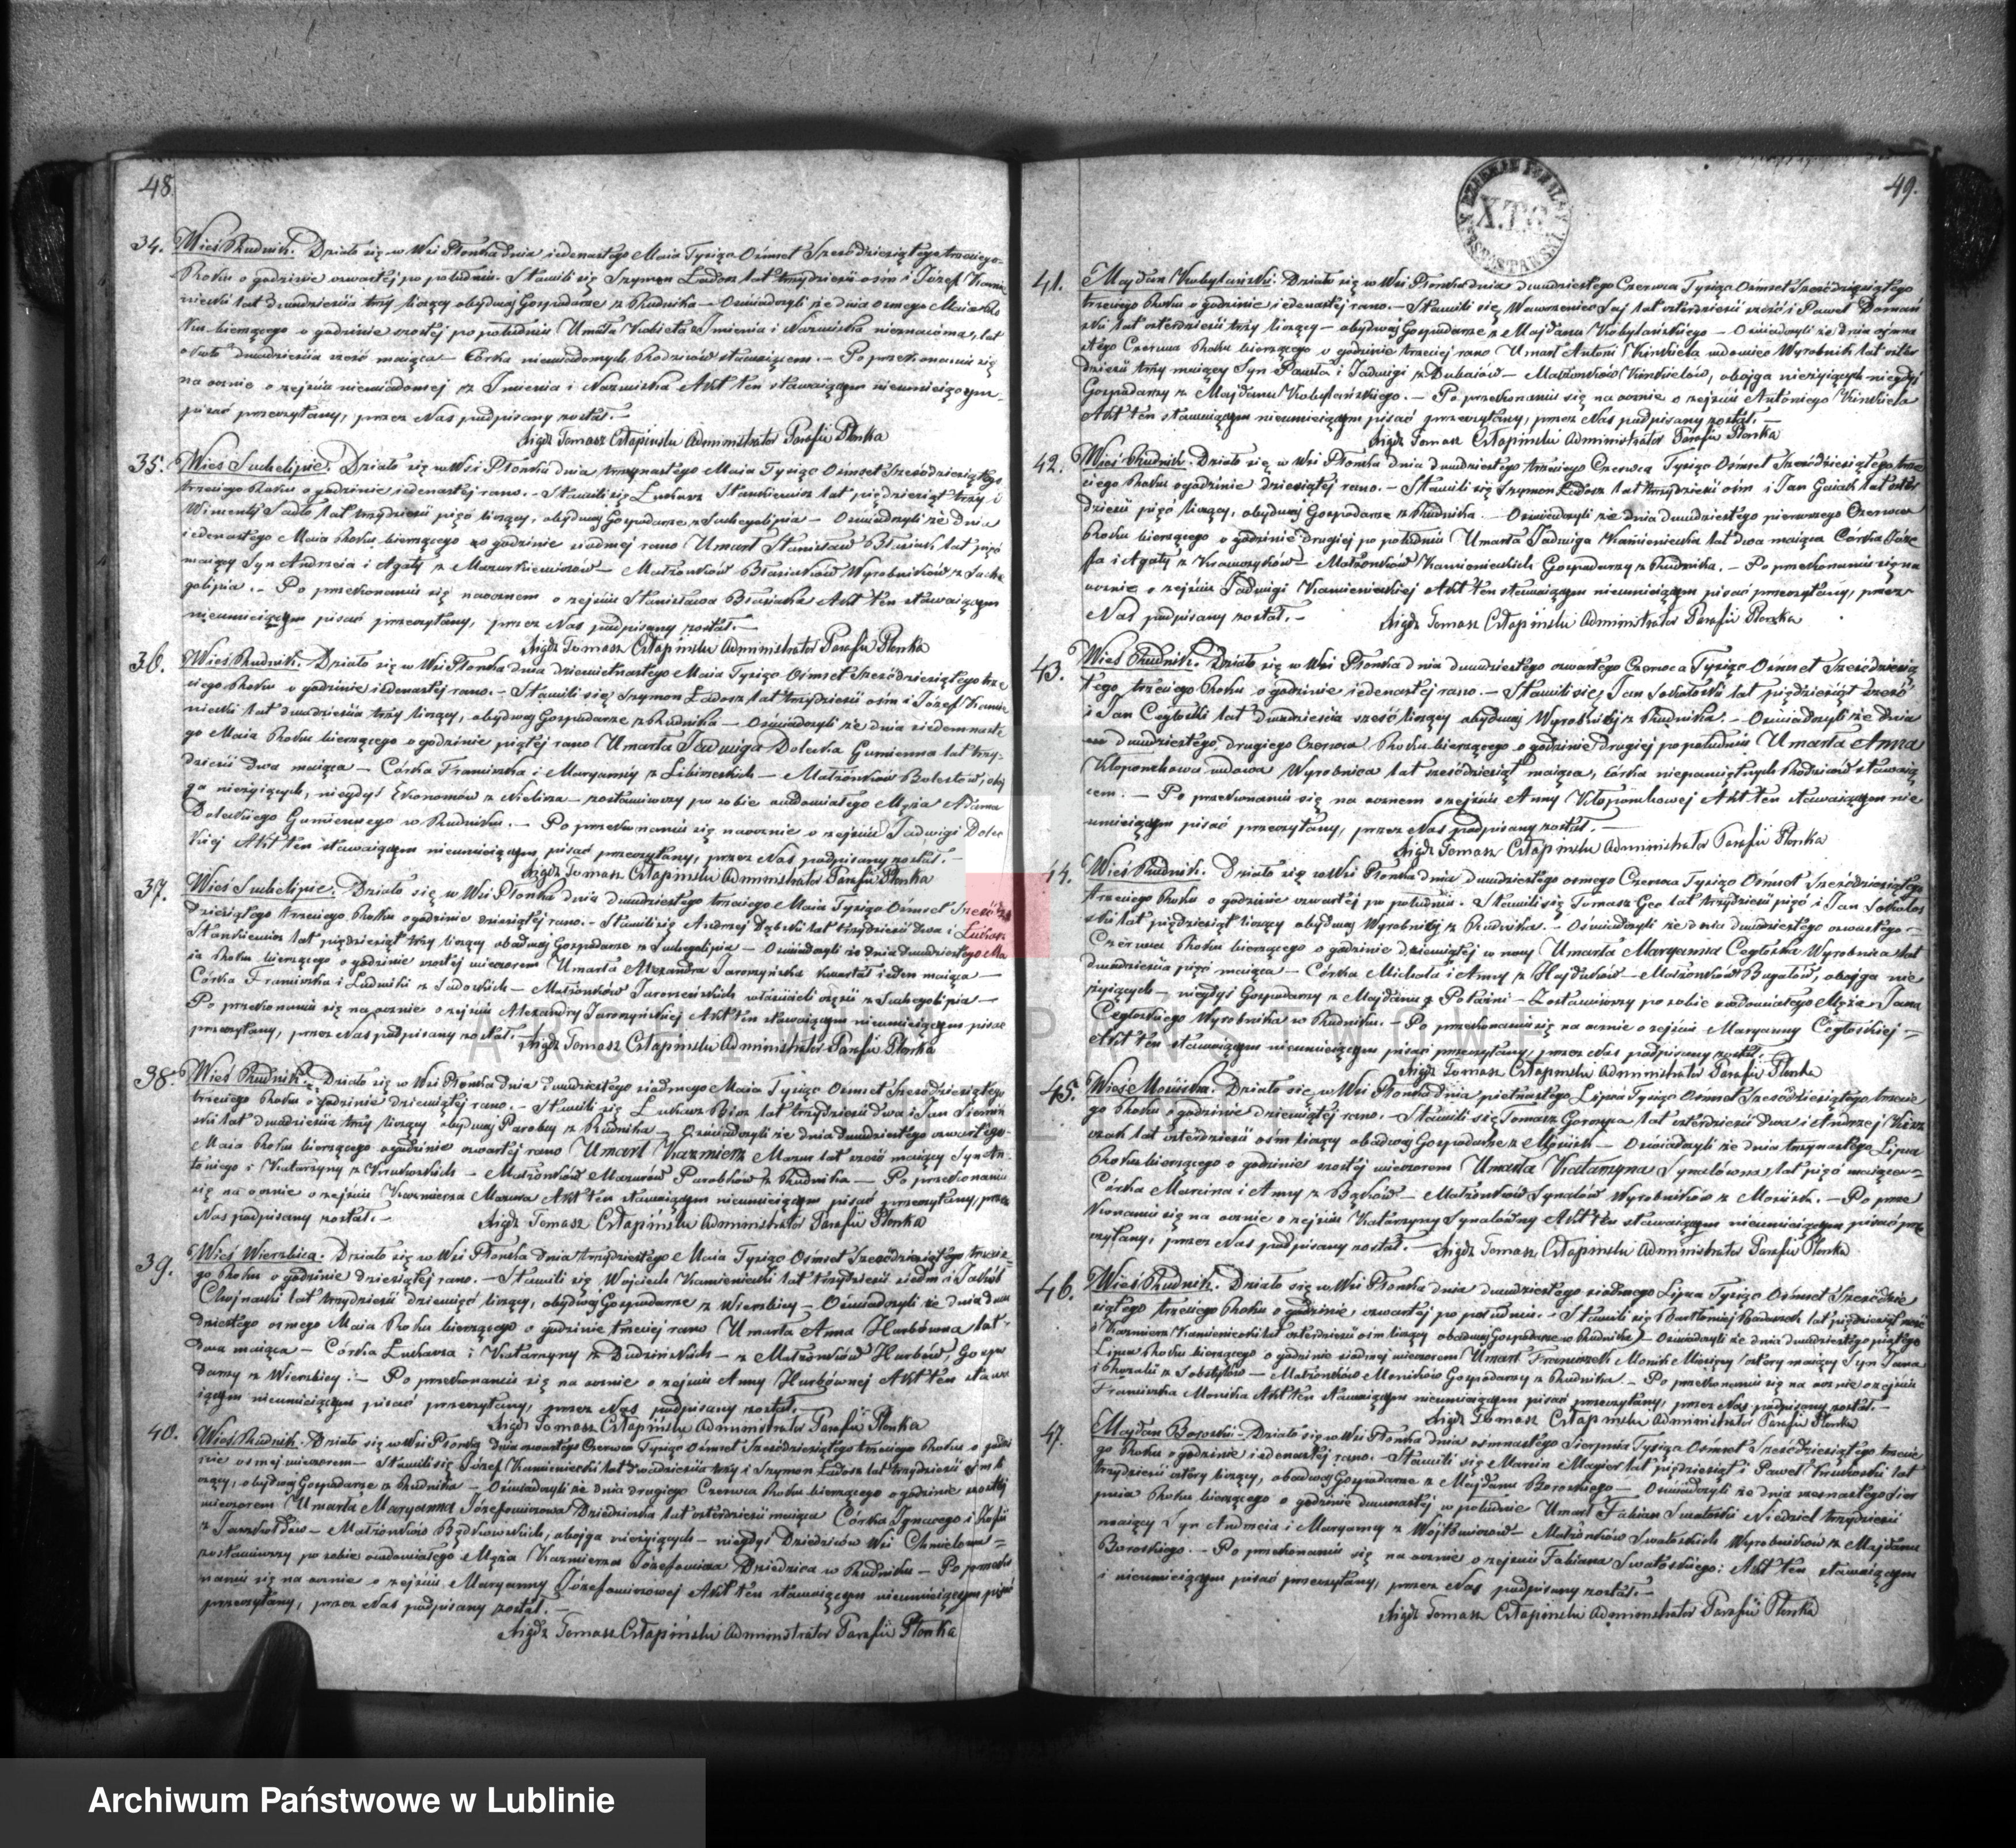 48.
34. Wieś Rudnik. Działo się w Wsi Płonka dnia iedenastego Maia Tysiąc Ośmset Sześćdziesiątego trzeciego
Roku o godzinie czwartej po południu. Stawili się Szymon Ładosz lat trzydzieści ośm i Józef Kamie
niecki lat dwadzieścia trzy liczący obydwaj Gospodarze z Rudnika — Oświadczyli że dnia ósmego Maia Ro
ku bieżącego o godzinie szóstej po południu Umarła Kobieta z Imienia i Nazwiska nieznaioma, lat
około dwadzieścia sześć maiąca — Córka niewiadomych Rodziców stawaiącem. — Po przekonaniu się
na ocznie o zejściu niewiadomej z Imienia i Nazwiska Akt ten stawaiącym nieumieiącym
pisać przeczytany, przez Nas podpisany został. —
Xiądz Tomasz Człapiński Administrator Parafii Płonka
35. Wieś Suchelipie. Działo się w Wsi Płonka dnia trzynastego Maia Tysiąc Ośmset Sześćdziesiątego
trzeciego Roku o godzinie iedenastej rano. — Stawili się Łukasz Stankiewicz lat pięćdziesiąt trzy i
Wincenty Sadło lat trzydzieści pięć liczący, obydwaj Gospodarze z Suchegolipia — Oświadczyli że dnia
iedenastego Maia Roku bieżącego o godzinie siódmej rano Umarł Stanisław Blasiak lat pięć
maiący Syn Andrzeia i Agaty z Mazurkiewiczów — Małżonków Blasiaków Wyrobników z Suche
golipia. — Po przekonaniu się naocznem o zejściu Stanisława Blasiaka Akt ten stawaiącym
nieumieiącym pisać przeczytany, przez Nas podpisany został. —
Xiądz Tomasz Człapiński Administrator Parafii Płonka
36. Wieś Rudnik. Działo się w Wsi Płonka dnia dziewiętnastego Maia Tysiąc Ośmset Sześćdziesiątego trze
ciego Roku o godzinie iedenastej rano. — Stawili się Szymon Ładosz lat trzydzieści ośm i Józef Kamie
niecki lat dwadzieścia trzy liczący, obydwaj Gospodarze z Rudnika — Oświadczyli że dnia siedemnaste
go Maia Roku bieżącego o godzinie piątej rano Umarła Jadwiga Dolecka Gumienna lat trzy
dzieści dwa maiąca — Córka Franciszka i Maryanny z Libiszeskich — Małżonków oboj
ga nieżyiących, niegdyś Ekonomów z Nielisza — zostawiwszy po sobie owdowiałego Męża Adama
Doleckiego Gumiennego w Rudniku. — Po przekonaniu się naocznie o zejściu Jadwigi Dolec
kiej Akt ten stawaiącym nieumieiącym pisać przeczytany, przez Nas podpisany został. —
Xiądz Tomasz Człapiński Administrator Parafii Płonka
37. Wieś Suchelipie. Działo się w Wsi Płonka dnia dwudziestego trzeciego Maia Tysiąc Ośmset Sześć
dziesiątego trzeciego Roku o godzinie dziesiątej rano. — Stawili się Andrzej Dąbski lat trzydzieści dwa i Łukasz
Stankiewicz lat pięćdziesiąt trzy liczący obadwaj Gospodarze z Suchegolipia — Oświadczyli że dnia dwudziestego Ma
ia Roku bieżącego o godzinie szóstej wieczorem Umarła Alexandra Jaroszyńska kwartał ieden maiąca —
Córka Franciszka i Ludwiki z Sadoskich — Małżonków Jaroszeńskich właścicieli części z Suchegolipia —
Po przekonaniu się na ocznie o zejściu Alexandry Jaroszyńskiej Akt ten stawaiącym nieumieiącym pisać
przeczytany, przez Nas podpisany został. —
Xiądz Tomasz Człapiński Administrator Parafii Płonka
38. Wieś Rudnik. — Działo się w Wsi Płonka dnia dwudziestego siódmego Maia Tysiąc Ośmset Sześćdziesiątego
trzeciego Roku o godzinie dziewiątej rano. — Stawili się Łukasz lat trzydzieści dwa i Jan
ski lat dwadzieścia trzy liczący obydwaj Parobcy z Rudnika — Oświadczyli że dnia dwudziestego czwartego
Maia Roku bieżącego o godzinie czwartej rano Umarł Kazmierz Mazur lat sześć maiący Syn An
toniego i Katarzyny z — Małżonków Mazurów Parobków z Rudnika — Po przekonaniu
się na ocznie o zejściu Kazmierza Mazura Akt ten stawaiącym nieumieiącym pisać przeczytany, przez
Nas podpisany został. —
Xiądz Tomasz Człapiński Administrator Parafii Płonka
39. Wieś Wierzbica. Działo się w Wsi Płonka dnia trzydziestego Maia Tysiąc Ośmset Sześćdziesiątego trzecie
go Roku o godzinie dziesiątej rano. — Stawili się Wojciech Kamieniecki lat trzydzieści siedm i Jakób
Chojnacki lat trzydzieści dziewięć liczący, obydwaj Gospodarze z Wierzbicy — Oświadczyli że dnia dwu
dziestego ósmego Maia Roku bieżącego o godzinie trzeciej rano Umarła Anna Hurbówna lat
dwa maiąca — Córka Łukasza i Katarzyny z Dudzińskich — z Małżonków Hurbów, Gospo
darzy z Wierzbicy. — Po przekonaniu się na ocznie o zejściu Anny Hurbównej Akt ten stawa
iącym nieumieiącym pisać przeczytany, przez Nas podpisany został. —
Xiądz Tomasz Człapiński Administrator Parafii Płonka
40. Wieś Rudnik. Działo się w Wsi Płonka dnia czwartego Czerwca Tysiąc Ośmset Sześćdziesiątego trzeciego Roku o godzi
nie ósmej wieczorem — Stawili się Józef Kamieniecki lat dwadzieścia trzy i Szymon Ładosz lat trzydzieści ośm li
czący, obydwaj Gospodarze z Rudnika — Oświadczyli że dnia drugiego Czerwca Roku bieżącego o godzinie szóstej
wieczorem Umarła Maryanna Józefowiczowa Dziedziczka lat czterdzieści maiąca Córka Ignacego i Zofii
z — Małżonków Bądkowskich, obojga nieżyiących — niegdyś Dziedziców Wsi Chmielowa =
zostawiwszy po sobie owdowiałego Męża Kazmierza Józefowicza Dziedzica w Rudniku — Po przeko
naniu się na ocznie o zejściu Maryanny Józefowiczowej Akt ten stawaiącym nieumieiącym pisać
przeczytany, przez Nas podpisany został. —
Xiądz Tomasz Człapiński Administrator Parafii Płonka
49.
X.T.C.
41. Majdan Kobylański. Działo się w Wsi Płonka dnia dwudziestego Czerwca Tysiąc Ośmset Sześćdziesiątego
trzeciego Roku o godzinie iedenastej rano. — Stawili się Wawrzeniec Saj lat czterdzieści sześć i Paweł Domań
ski lat czterdzieści trzy liczący — obydwaj Gospodarze z Majdanu Kobylańskiego — Oświadczyli że dnia ośmna
stego Czerwca Roku bieżącego o godzinie trzeciej rano Umarł Antoni Kinkiela wdowiec Wyrobnik lat czter
dzieści trzy maiący Syn Pawła i Jadwigi z Dubaiów — Małżonków Kinkielów, obojga nieżyiących niegdyś
Gospodarzy z Majdanu Kobylańskiego. — Po przekonaniu się na ocznie o zejściu Antoniego Kinkiela
Akt ten stawaiącym nieumieiącym pisać przeczytany, przez Nas podpisany został. —
Xiądz Tomasz Człapiński Administrator Parafii Płonka
42. Wieś Rudnik. Działo się w Wsi Płonka dnia dwudziestego trzeciego Czerwca Tysiąc Ośmset Sześćdziesiątego trze
ciego Roku o godzinie dziesiątej rano. — Stawili się Szymon Ładosz lat trzydzieści ośm i Jan Gaiak lat czter
dzieści pięć liczący, obydwaj Gospodarze z Rudnika. — Oświadczyli że dnia dwudziestego pierwszego Czerwca
Roku bieżącego o godzinie drugiej po południu Umarła Jadwiga Kamieniecka lat dwa maiąca Córka Józe
fa i Agaty z Krawczyków — Małżonków Kamienieckich Gospodarzy z Rudnika. — Po przekonaniu się na
ocznie o zejściu Jadwigi Kamienieckiej Akt ten stawaiącym nieumieiącym pisać przeczytany, przez
Nas podpisany został. —
Xiądz Tomasz Człapiński Administrator Parafii Płonka
43. Wieś Rudnik. Działo się w Wsi Płonka dnia dwudziestego czwartego Czerwca Tysiąc Ośmset Sześćdziesią
tego trzeciego Roku o godzinie iedenastej rano. — Stawili się Jan Sokołoski lat pięćdziesiąt sześć
i Jan Cegłoski lat dwadzieścia sześć liczący obydwaj Wyrobnicy z Rudnika. — Oświadczyli że dnia
dwudziestego drugiego Czerwca Roku bieżącego o godzinie drugiej po południu Umarła Anna
Kłopowkowa wdowa Wyrobnica lat sześćdziesiąt maiąca, Córka niepamiętnych Rodziców stawaią
cem. — Po przekonaniu się na ocznem o zejściu Anny Kłopowkowej Akt ten stawaiącym nie
umieiącym pisać przeczytany, przez Nas podpisany został. —
Xiądz Tomasz Człapiński Administrator Parafii Płonka
44. Wieś Rudnik. Działo się w Wsi Płonka dnia dwudziestego ósmego Czerwca Tysiąc Ośmset Sześćdziesiątego
trzeciego Roku o godzinie czwartej po południu. Stawili się Tomasz Gęc lat trzydzieści pięć i Jan Sokoło
ski lat pięćdziesiąt liczący obydwaj Wyrobnicy z Rudnika. — Oświadczyli że dnia dwudziestego czwartego —
Czerwca Roku bieżącego o godzinie dziewiątej w nocy Umarła Maryanna Cegłoska Wyrobnica lat
dwadzieścia pięć maiąca — Córka Michała i Anny z Hajduków — Małżonków Bugałów, obojga nie
żyiących — niegdyś Gospodarzy z Majdanu — Zostawiwszy po sobie owdowiałego Męża Jana
Cegłoskiego Wyrobnika w Rudniku. — Po przekonaniu się na ocznie o zejściu Maryanny Cegłoskiej =
Akt ten stawaiącym nieumieiącym pisać przeczytany, przez Nas podpisany został.
Xiądz Tomasz Człapiński Administrator Parafii Płonka
45. Wieś Mościska. Działo się w Wsi Płonka dnia piętnastego Lipca Tysiąc Ośmset Sześćdziesiątego trzecie
go Roku o godzinie dziewiątej rano. — Stawili się Tomasz lat czterdzieści dwa i Andrzej
lat czterdzieści ośm liczący obadwaj Gospodarze z Mościsk — Oświadczyli że dnia trzynastego Lipca
Roku bieżącego o godzinie szóstej wieczorem Umarła Katarzyna Synalówna, lat pięć maiąca =
Córka Marcina i Anny z Bąków — Małżonków Synalów Wyrobników z Mościsk. — Po prze
konaniu się na ocznie o zejściu Katarzyny Synalówny Akt ten stawaiącym nieumieiącym pisać prze
czytany, przez Nas podpisany został. —
Xiądz Tomasz Człapiński Administrator Parafii Płonka
46. Wieś Rudnik. Działo się w Wsi Płonka dnia dwudziestego siódmego Lipca Tysiąc Ośmset Sześćdzie
siątego trzeciego Roku o godzinie czwartej po południu. — Stawili się Bartłomiej lat pięćdziesiąt sześć
i Kazmierz Kamieniecki lat czterdzieści ośm liczący obadwaj Gospodarze w Rudniku — Oświadczyli że dnia dwudziestego piątego
Lipca Roku bieżącego o godzinie siódmej wieczorem Umarł Franciszek Monik Miesięcy cztery maiący Syn Jana
i Rozalii z Sobstylów — Małżonków Moników Gospodarzy z Rudnika. — Po przekonaniu się na ocznie o zejściu
Franciszka Monika Akt ten stawaiącym nieumieiącym pisać przeczytany, przez Nas podpisany został. —
Xiądz Tomasz Człapiński Administrator Parafii Płonka
47. Majdan Boroski. Działo się w Wsi Płonka dnia ośmnastego Sierpnia Tysiąc Ośmset Sześćdziesiątego trzecie
go Roku o godzinie iedenastej rano. — Stawili się Marcin Magier lat pięćdziesiąt i Paweł lat
trzydzieści cztery liczący, obadwaj Gospodarze z Majdanu Boroskiego — Oświadczyli że dnia szesnastego Sier
pnia Roku bieżącego o godzinie dwunastej w południe Umarł Fabian Swatoski Niedziel trzydzieści
maiący Syn Andrzeia i Maryanny z Wójtowiczów — Małżonków Swatoskich Wyrobników z Majdanu
Boroskiego. — Po przekonaniu się na ocznie o zejściu Fabiana Swatoskiego: Akt ten stawaiącym
i nieumieiącym pisać przeczytany, przez Nas podpisany został. —
Xiądz Tomasz Człapiński Administrator Parafii Płonka
Archiwum Państwowe w Lublinie